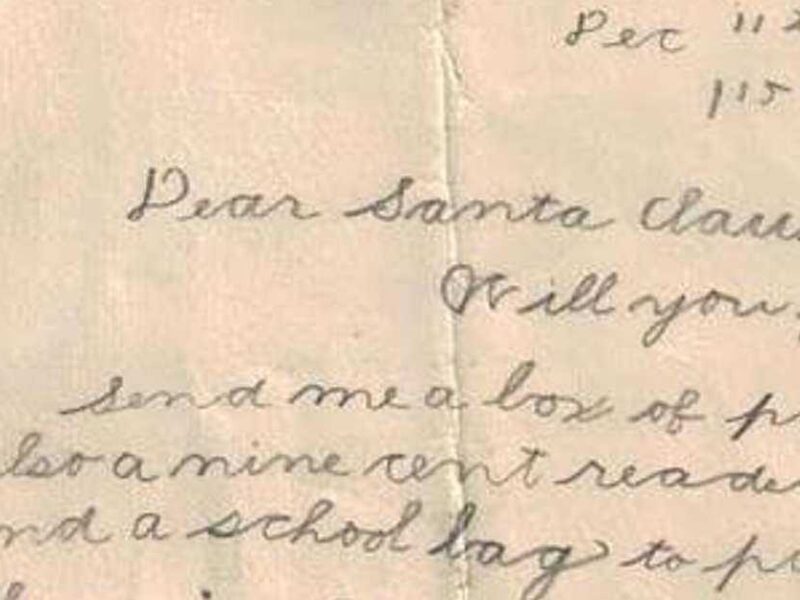 Dec 11
115
Dear Santa Claus
Will you
send me a box of
also a nine cent reader
and a school bag to